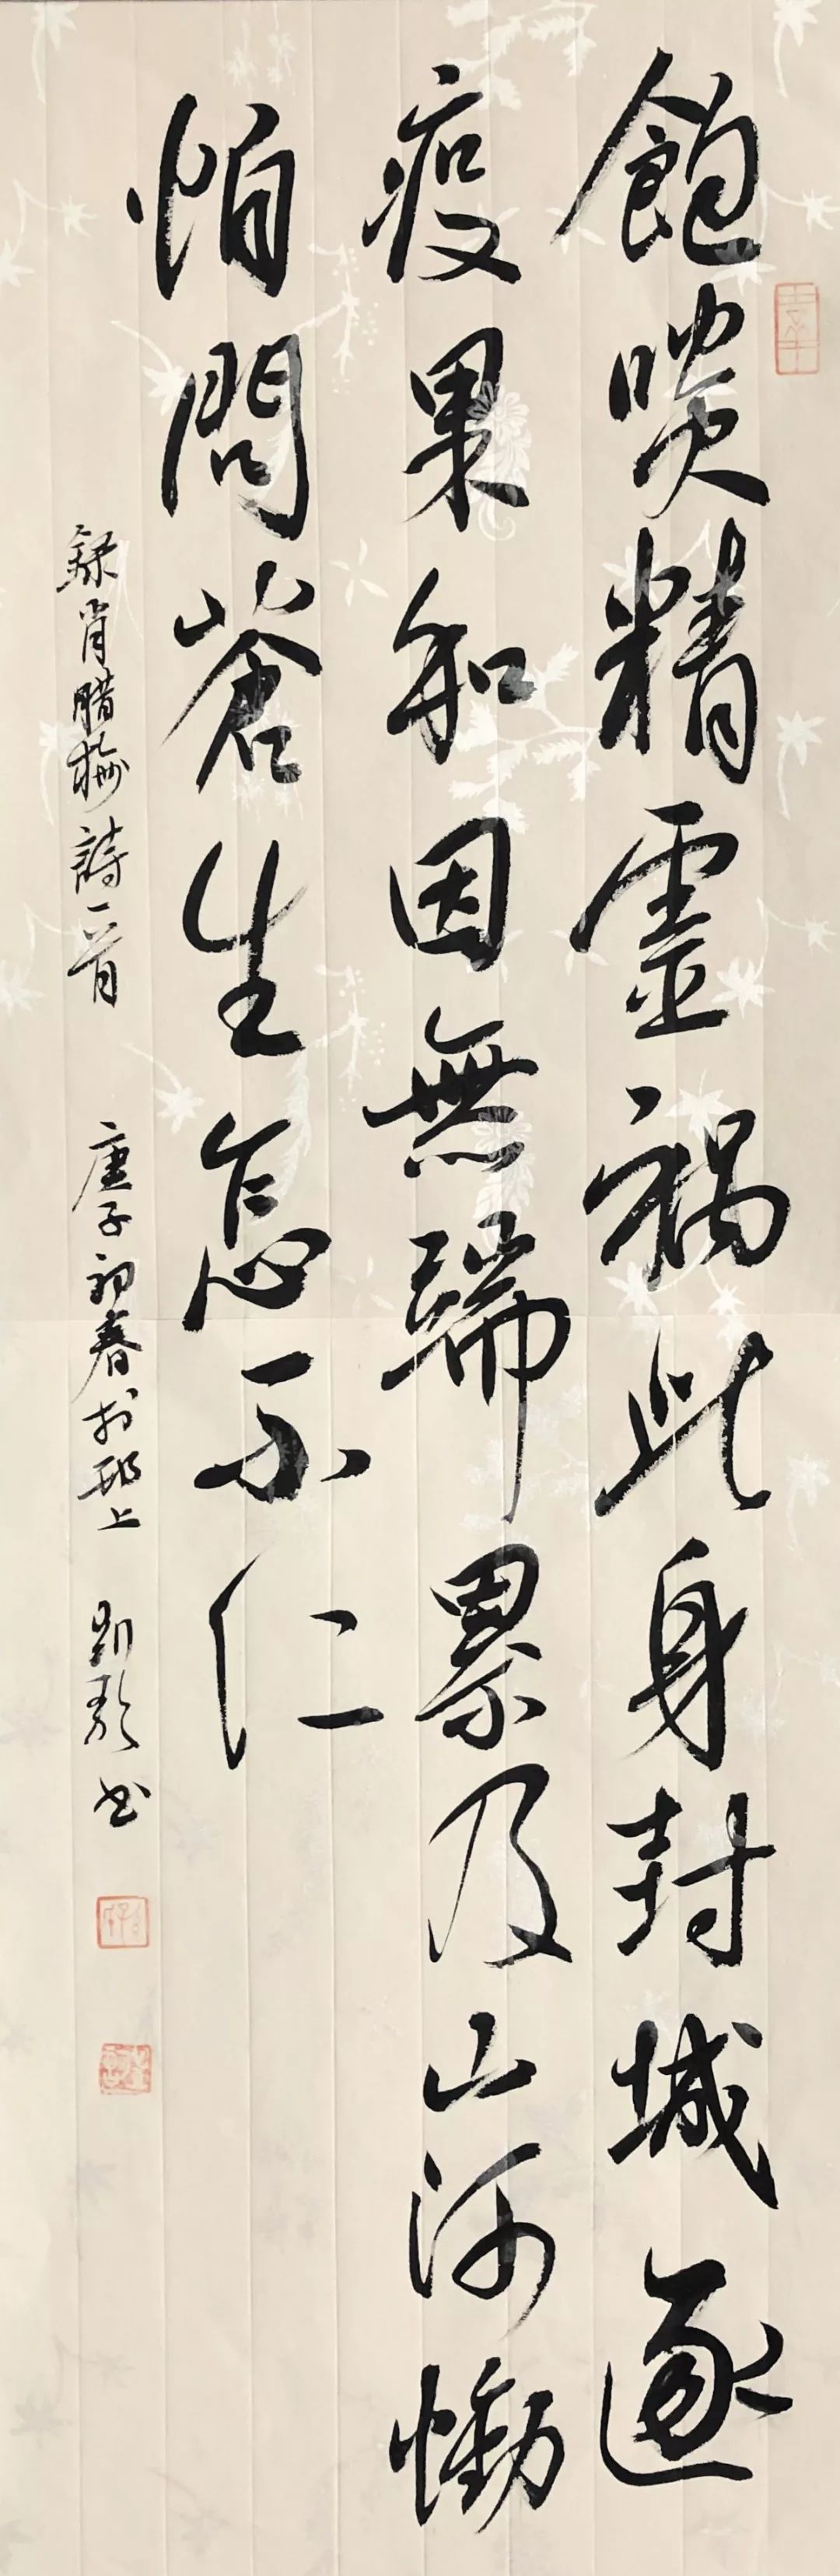 飽啖精靈祸此身封城逐
疫果和因無端累及山河慟
怕問蒼生怎不仁
錄肖腊梅詩一首 庚子初春於邗上 書